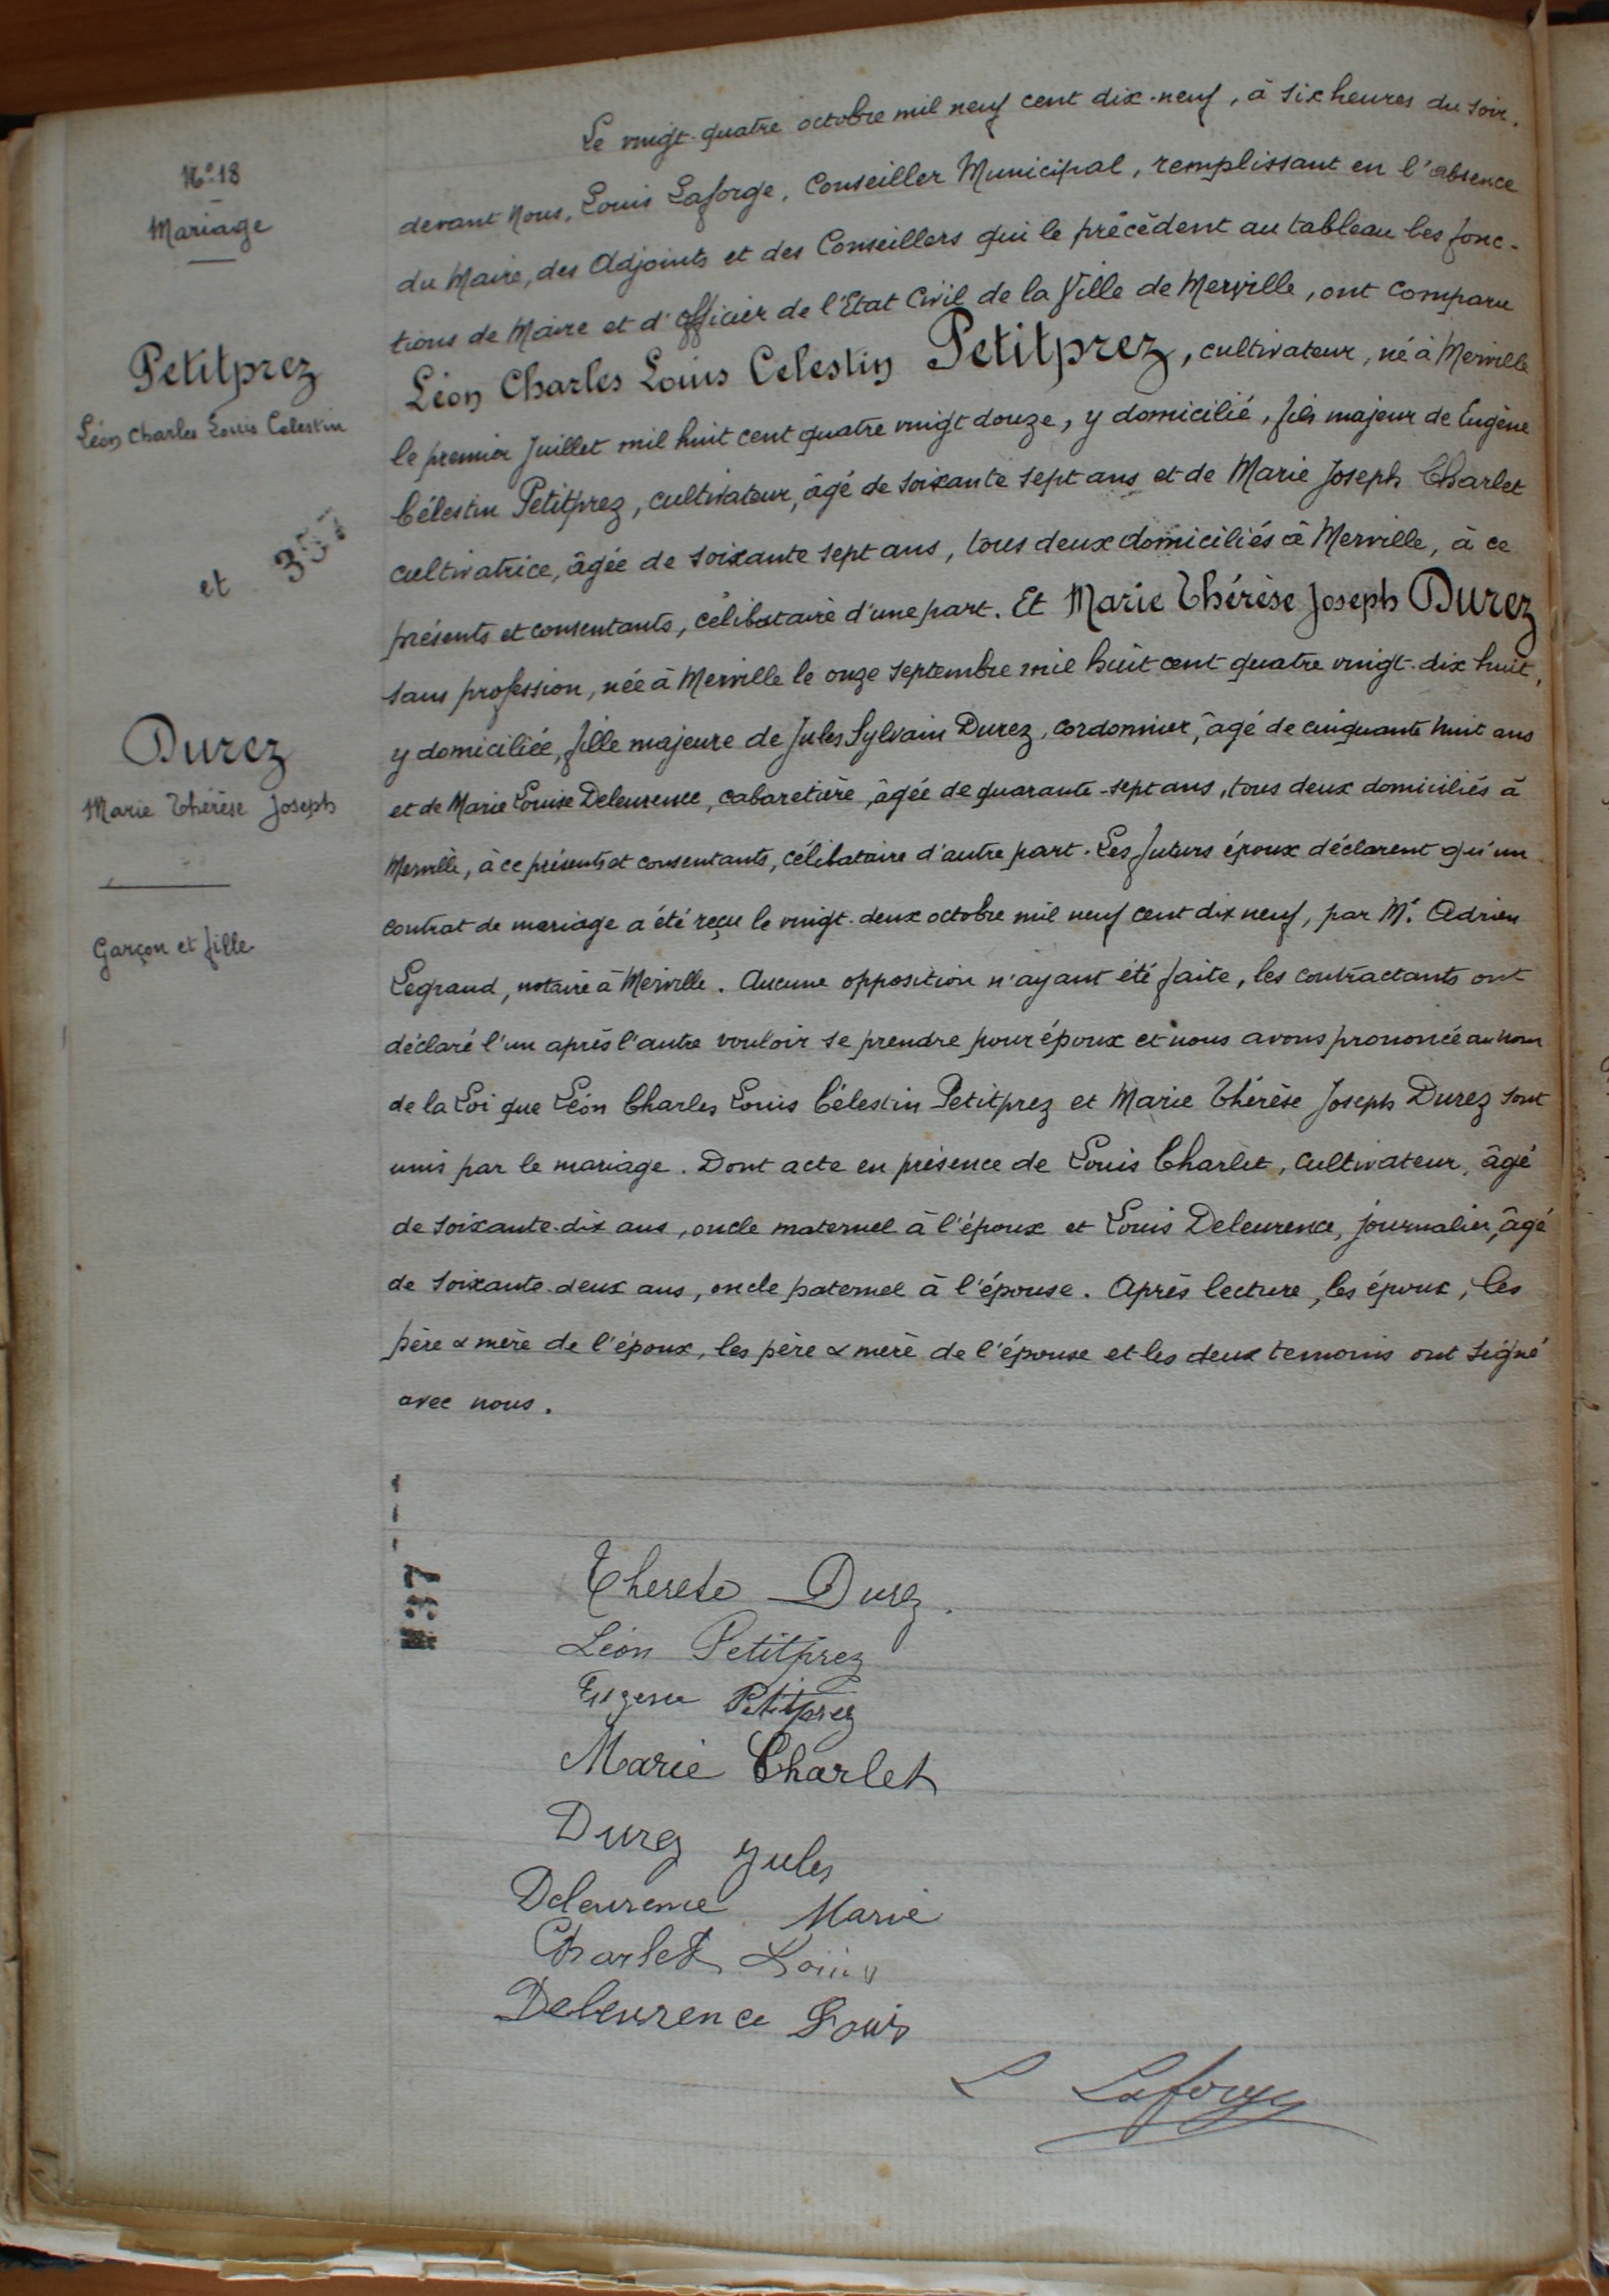 N° 18
Mariage
Petitprez
Léon Charles Louis Celestin
et
Durez
Marie Thérèse Joseph
Garçon et fille
Le vingt-quatre octobre mil neuf cent dix-neuf, à six heures du soir,
devant Nous, Louis Laforge, Conseiller Municipal, remplissant en l'absence
du Maire, des Adjoints et des Conseillers qui le précèdent au tableau les fonc-
tions de Maire et d'officier de l'Etat Civil de la Ville de Merville, ont comparu
Léon Charles Louis Celestin Petitprez, cultivateur, né à Merville
le premier Juillet mil huit cent quatre vingt douze, y domicilié, fils majeur de Eugène
Célestin Petitprez, cultivateur, âgé de soixante sept ans et de Marie Joseph Charlet
cultivatrice, âgée de soixante sept ans, tous deux domiciliés à Merville, à ce
présents et consentants, célibataire d'une part. Et Marie Thérèse Joseph Durez
sans profession, née à Merville le onze septembre mil huit cent quatre vingt-dix huit,
y domiciliée, fille majeure de Jules Sylvain Durez, cordonnier, âgé de cinquante huit ans
et de Marie Louise Deleurence, cabaretière, âgée de quarante-sept ans, tous deux domiciliés à
Merville, à ce présents et consentants, célibataire d'autre part. Les futurs époux déclarent qu'un
contrat de mariage a été reçu le vingt-deux octobre mil neuf cent dix neuf, par Me Adrien
Legrand, notaire à Merville. Aucune opposition n'ayant été faite, les contractants ont
déclaré l'un après l'autre vouloir se prendre pour époux et nous avons prononcé au nom
de la Loi que Léon Charles Louis Célestin Petitprez et Marie Thérèse Joseph Durez sont
unis par le mariage. Dont acte en présence de Louis Charlet, cultivateur, âgé
de soixante-dix ans, oncle maternel à l'époux et Louis Deleurence, journalier, âgé
de soixante-deux ans, oncle paternel à l'épouse. Après lecture, les époux, les
père & mère de l'époux, les père & mère de l'épouse et les deux temoins ont signé
avec nous.
Therese Durez.
Léon Petitprez
Eugene Petitprez
Marie Charlet
Durez Jules
Deleurence Marie
Charlet Louis
Deleurence Louis
L Laforge